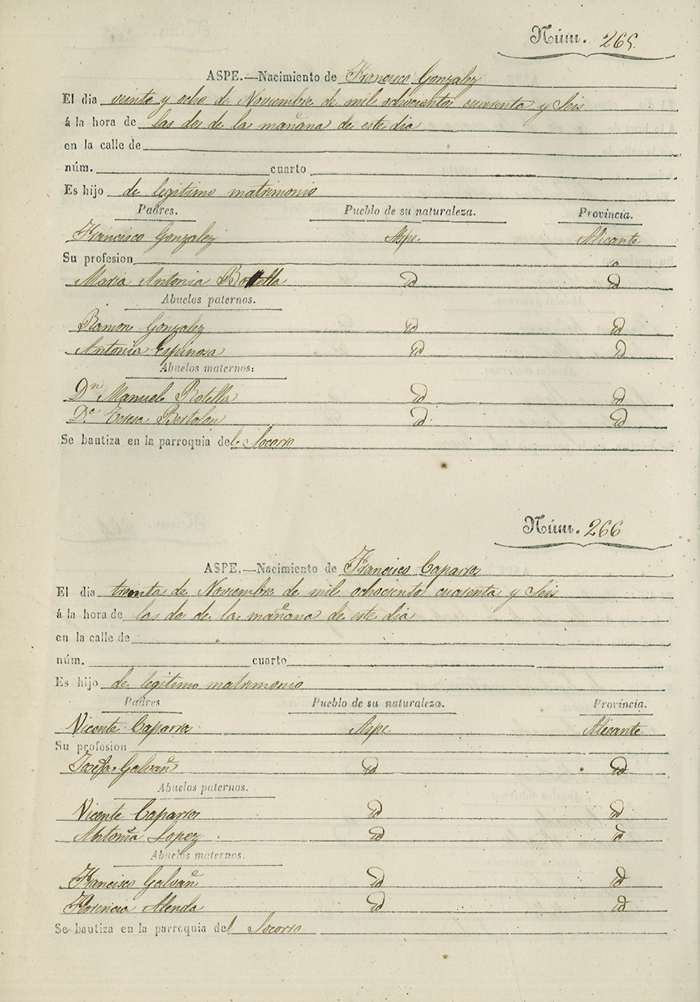 Núm. 265
ASPE.—Nacimiento de Francisco Gonzalez
El dia veinte y ocho de Noviembre de mil ochocientos cuarenta y Seis
á la hora de las dos de la mañana de este dia
en la calle de
núm. cuarto
Es hijo de legitimo matrimonio
Padres. Pueblo de su naturaleza. Provincia.
Francisco Gonzalez Aspe Alicante
Su profesion
Maria Antonia Botella id id
Abuelos paternos.
Ramon Gonzalez id id
Antonia Espinosa id id
Abuelos maternos:
Dn Manuel Botella id id
Da Teresa id id
Se bautiza en la parroquia del Socorro
Núm. 266
ASPE.—Nacimiento de Francisco Caparros
El dia treinta de Noviembre de mil ochocientos cuarenta y Seis
á la hora de las dos de la mañana de este dia
en la calle de
núm. cuarto
Es hijo de legitimo matrimonio
Padres Pueblo de su naturaleza. Provincia.
Vicente Caparros Aspe Alicante
Su profesion
Josefa Galvañ id id
Abuelos paternos.
Vicente Caparros id id
Antonia Lopez id id
Abuelos maternos.
Francisco Galvañ id id
Florencia Alenda id id
Se bautiza en la parroquia del Socorro